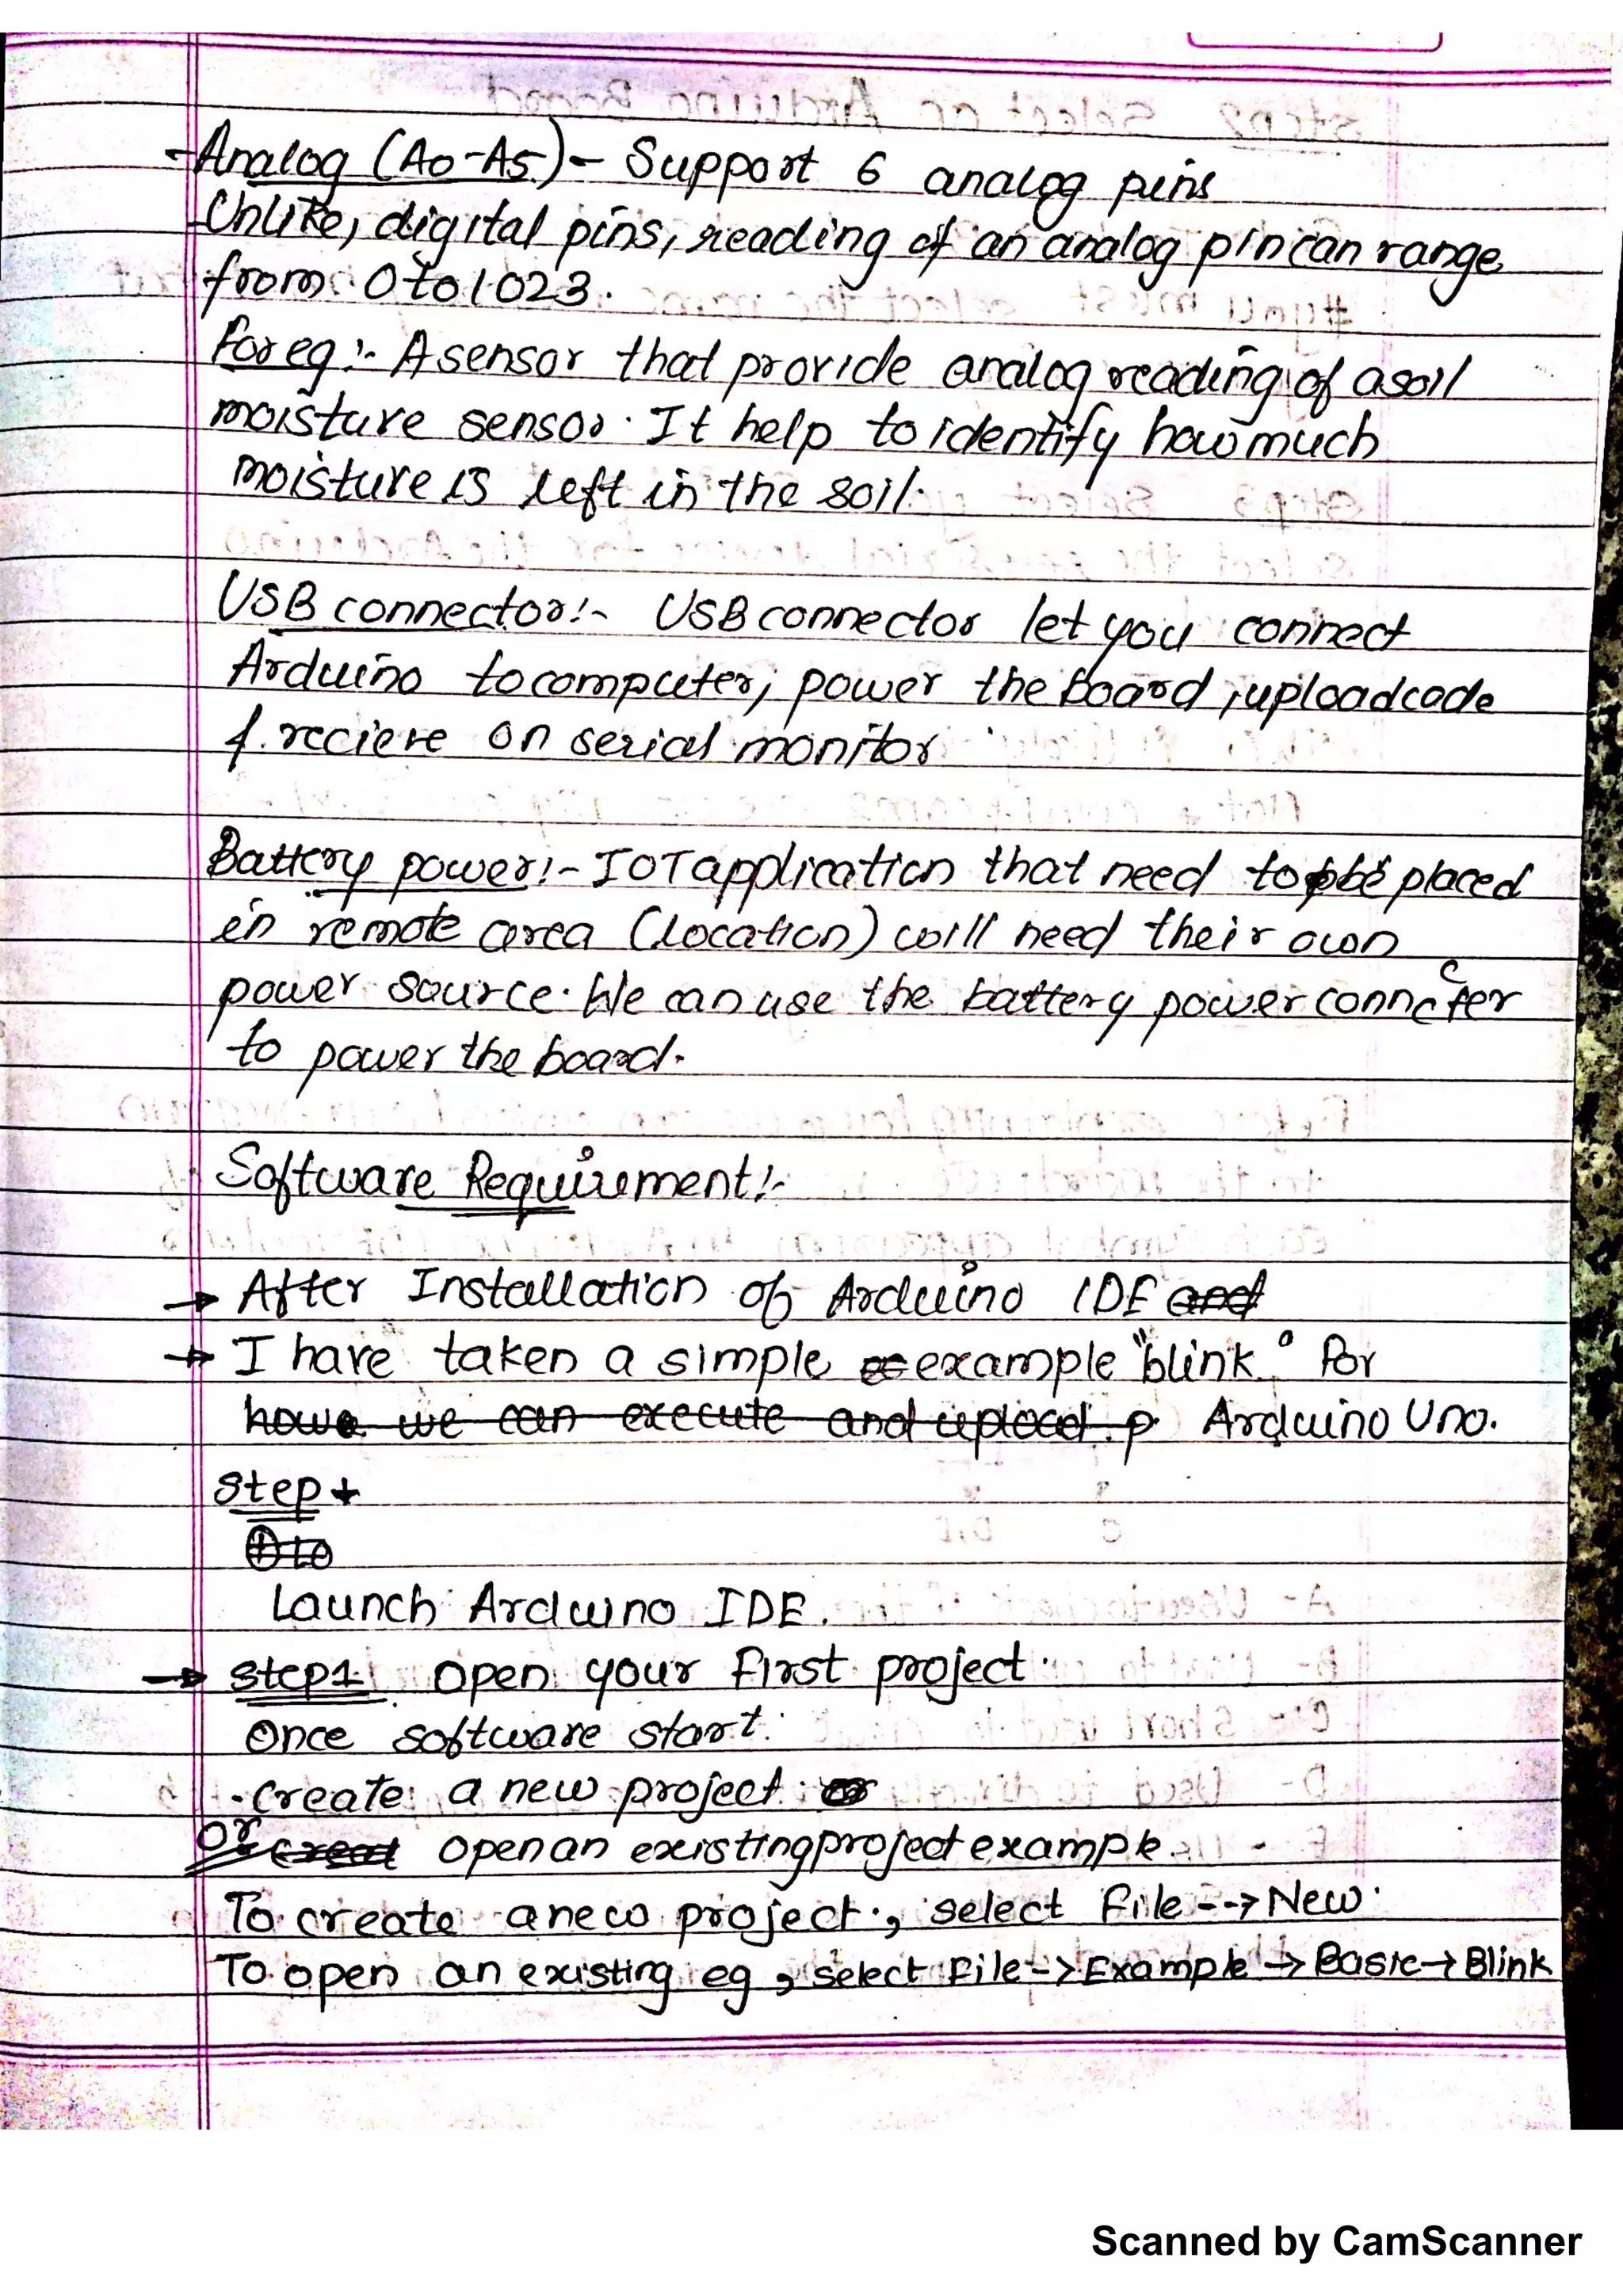 - Analog (A0-A5) - Support 6 analog pins
Unlike, digital pins, reading of an analog pin can range
from 0 to 1023.
For eg:- A sensor that provide analog reading of a soil
moisture sensor. It help to identify how much
moisture is left in the soil.
USB connector:- USB connector let you connect
Arduino to computer, power the board, upload code
& recieve on serial monitor
Battery power:- IOT application that need to be placed
in remote area (location) will need their own
power source. We can use the battery power connecter
to power the board.
Software Requirement:-
→ After Installation of Arduino IDE and
→ I have taken a simple example "blink" For
how we can execute and upload p Arduino Uno.
Step
Launch Arduino IDE.
→ Step1 Open your First project.
Once software start.
. Create a new project or
or creat open an existing project example.
To create a new project, select File --> New.
To open an existing eg, select File -> Example -> Basic -> Blink
Scanned by CamScanner